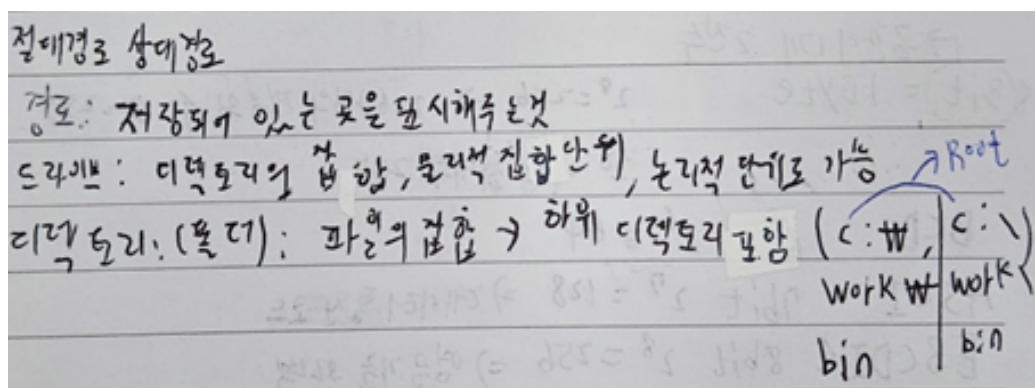 절대경로 상대경로
경로: 저장되어 있는 곳을 표시해주는것
드라이브: 디렉토리의 집합, 물리적 집합 단위, 논리적 단위로 가능
Root
디렉토리:(폴더): 파일의 집합 → 하위 디렉토리 포함 (C:₩, C:\
work₩ work\)
bin bin